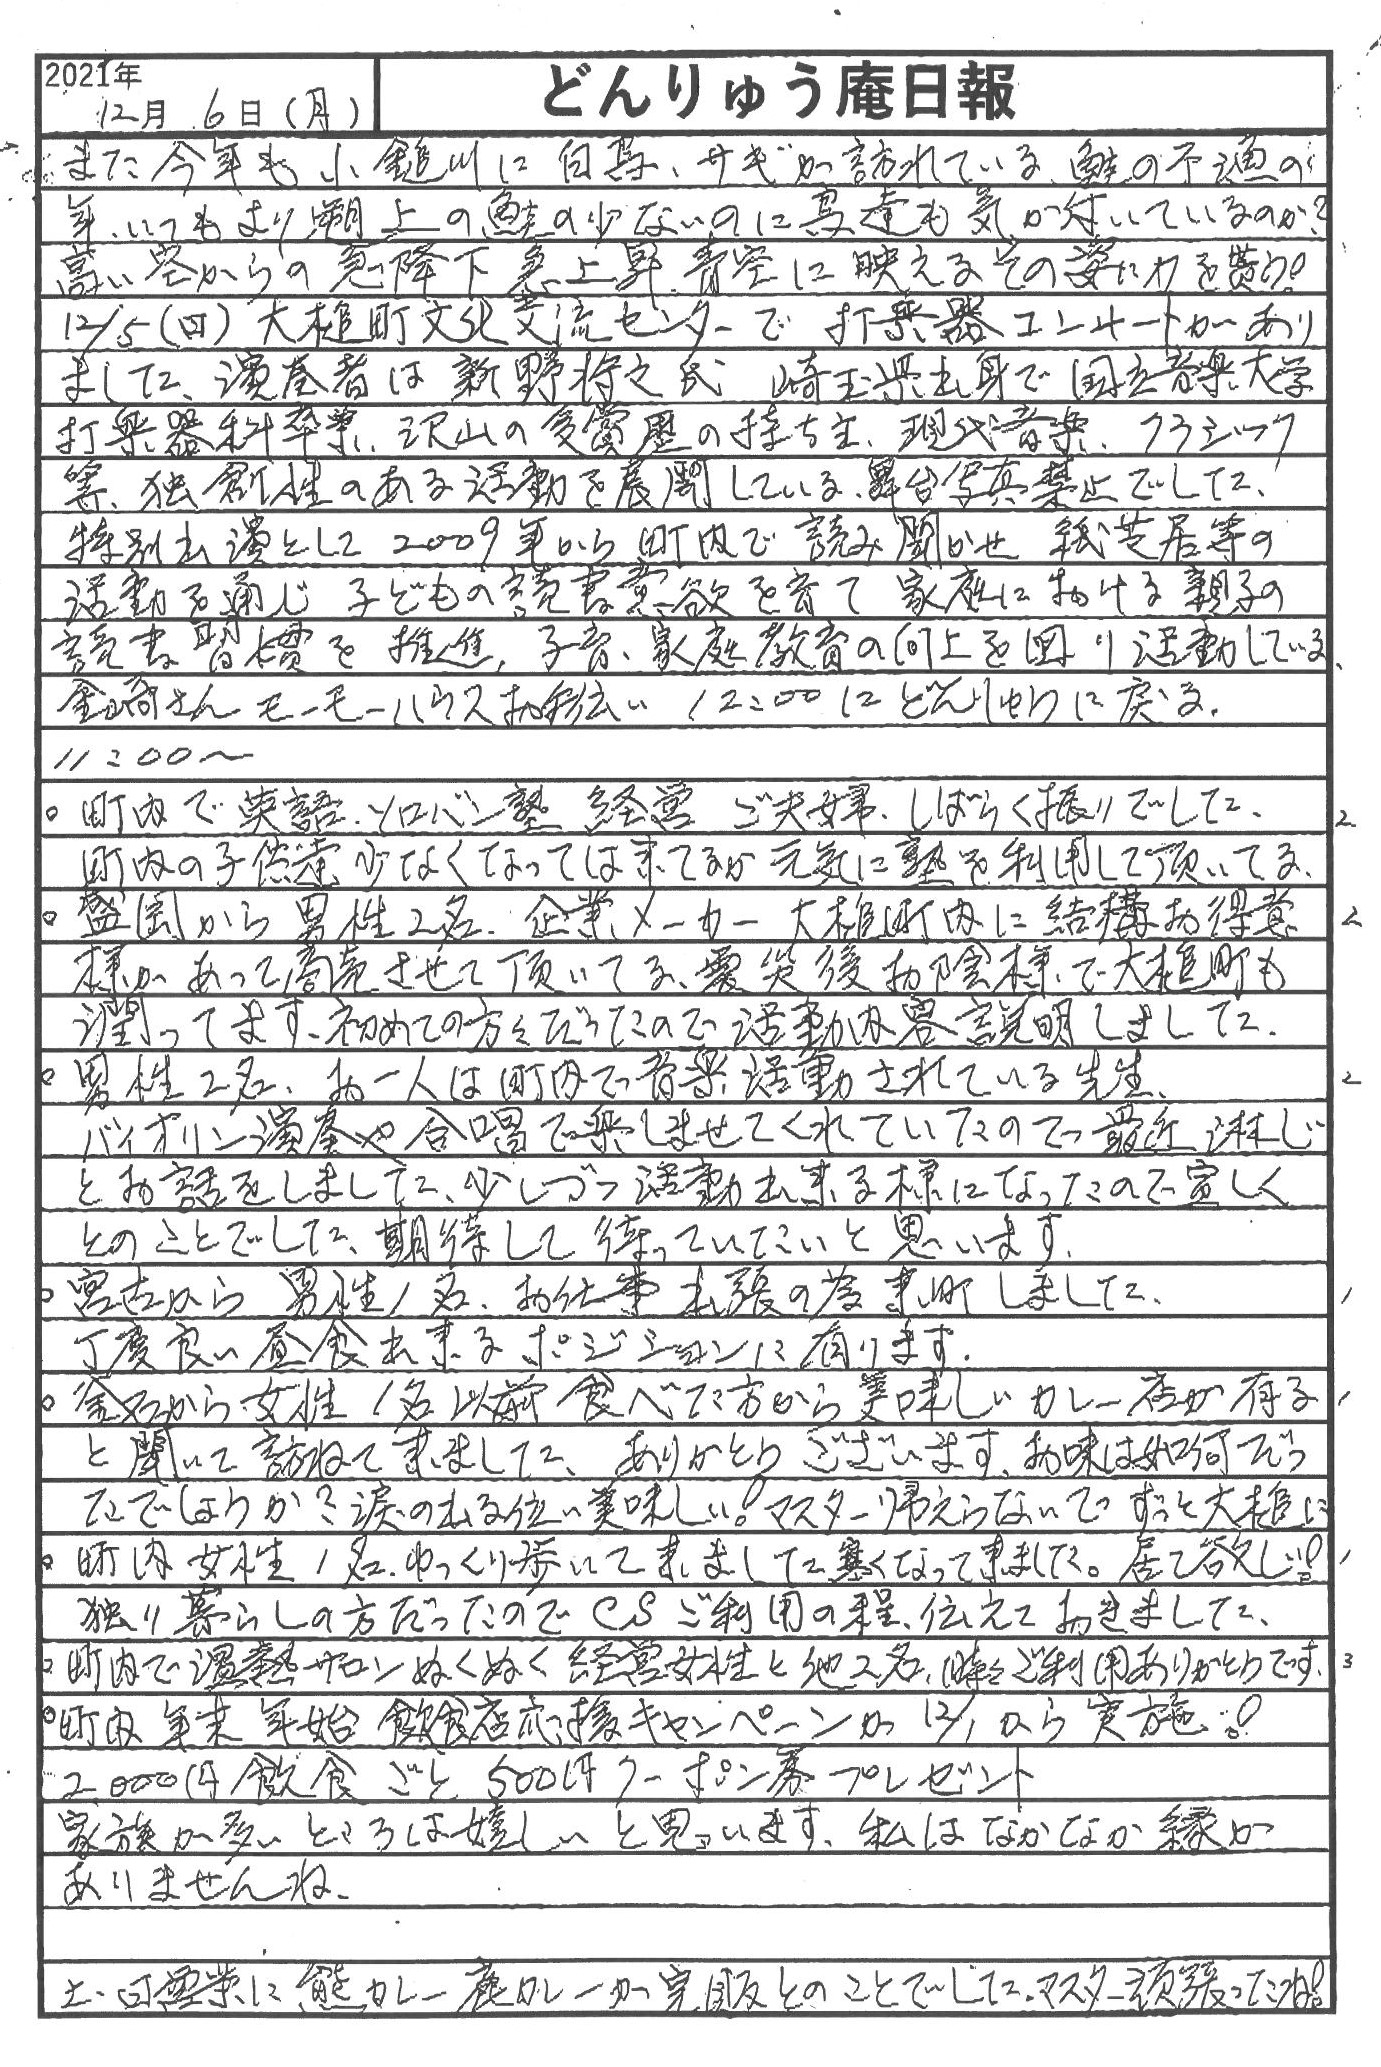 2021年
12月 6日(月)
どんりゅう庵日報
また今年も小鎚川に白鳥、サギが訪れている、鮭の不漁の
年、いつもより遡上の鮭の少ないのに鳥達も気が付いているのか?
高い空からの急降下急上昇、青空に映えるその姿に力を貰う!
12/5(日)大槌町文化交流センターで 打楽器コンサートがあり
ました、演奏者は新野将之氏 崎玉県出身で国立音楽大学
打楽器科卒業、沢山の受賞歴の持ち主、現代音楽、クラシック
等、独創性のある活動を展開している、舞台写真禁止でした、
特別出演として2009年から町内で読み聞かせ 紙芝居等の
活動を通じ 子どもの読書意欲を育て 家庭における親子の
読書習慣を推進、子育、家庭教育の向上を図り活動している、
金崎さん モーモーハウスお手伝い 12:00にどんりゅうに戻る。
11:00〜
○町内で英語、ソロバン塾 経営 ご夫婦、しばらく振りでした、 2
町内の子供達少なくなっては来てるが元気に塾を利用して頂いてる、
○盛岡から男性2名、企業メーカー大槌町内に結構お得意 2
様があって商売させて頂いてる、震災後お陰様で大槌町も
潤ってます、初めての方々だったので活動内容説明しました、
○男性2名、お一人は町内で音楽活動されている先生、 2
バイオリン演奏や合唱で楽しませてくれていたので最近淋しい
とお話をしました、少しづつ活動出来る様になったので宜しく
とのことでした、期待して待っていたいと思います。
○宮古から 男性1名、お仕事出張の為来町しました、 1
丁度良い昼食出来るポジションに有ります。
○釜石から女性1名以前食べた方から美味しいカレー店が有る 1
と聞いて訪ねて来ました、ありがとうございます、お味は如何だっ
たでしょうか?涙の出る位い美味しい!マスター帰えらないで ずっと大槌に
居て欲しい!
○町内女性1名、ゆっくり歩いて来ました寒くなって来ました。 1
独り暮らしの方だったのでCSご利用の程、伝えておきました、
○町内で温熱サロンぬくぬく経営女性と他2名、時々ご利用ありがとうです、 3
○町内年末年始 飲食店応援キャンペーンが12/1から実施!
2,000円飲食ごと 500円クーポン券プレゼント
家族が多いところは嬉しいと思います、私はなかなか縁が
ありませんね、
土、日営業に熊カレー鹿カレーが完販とのことでした、マスター頑張ったね!